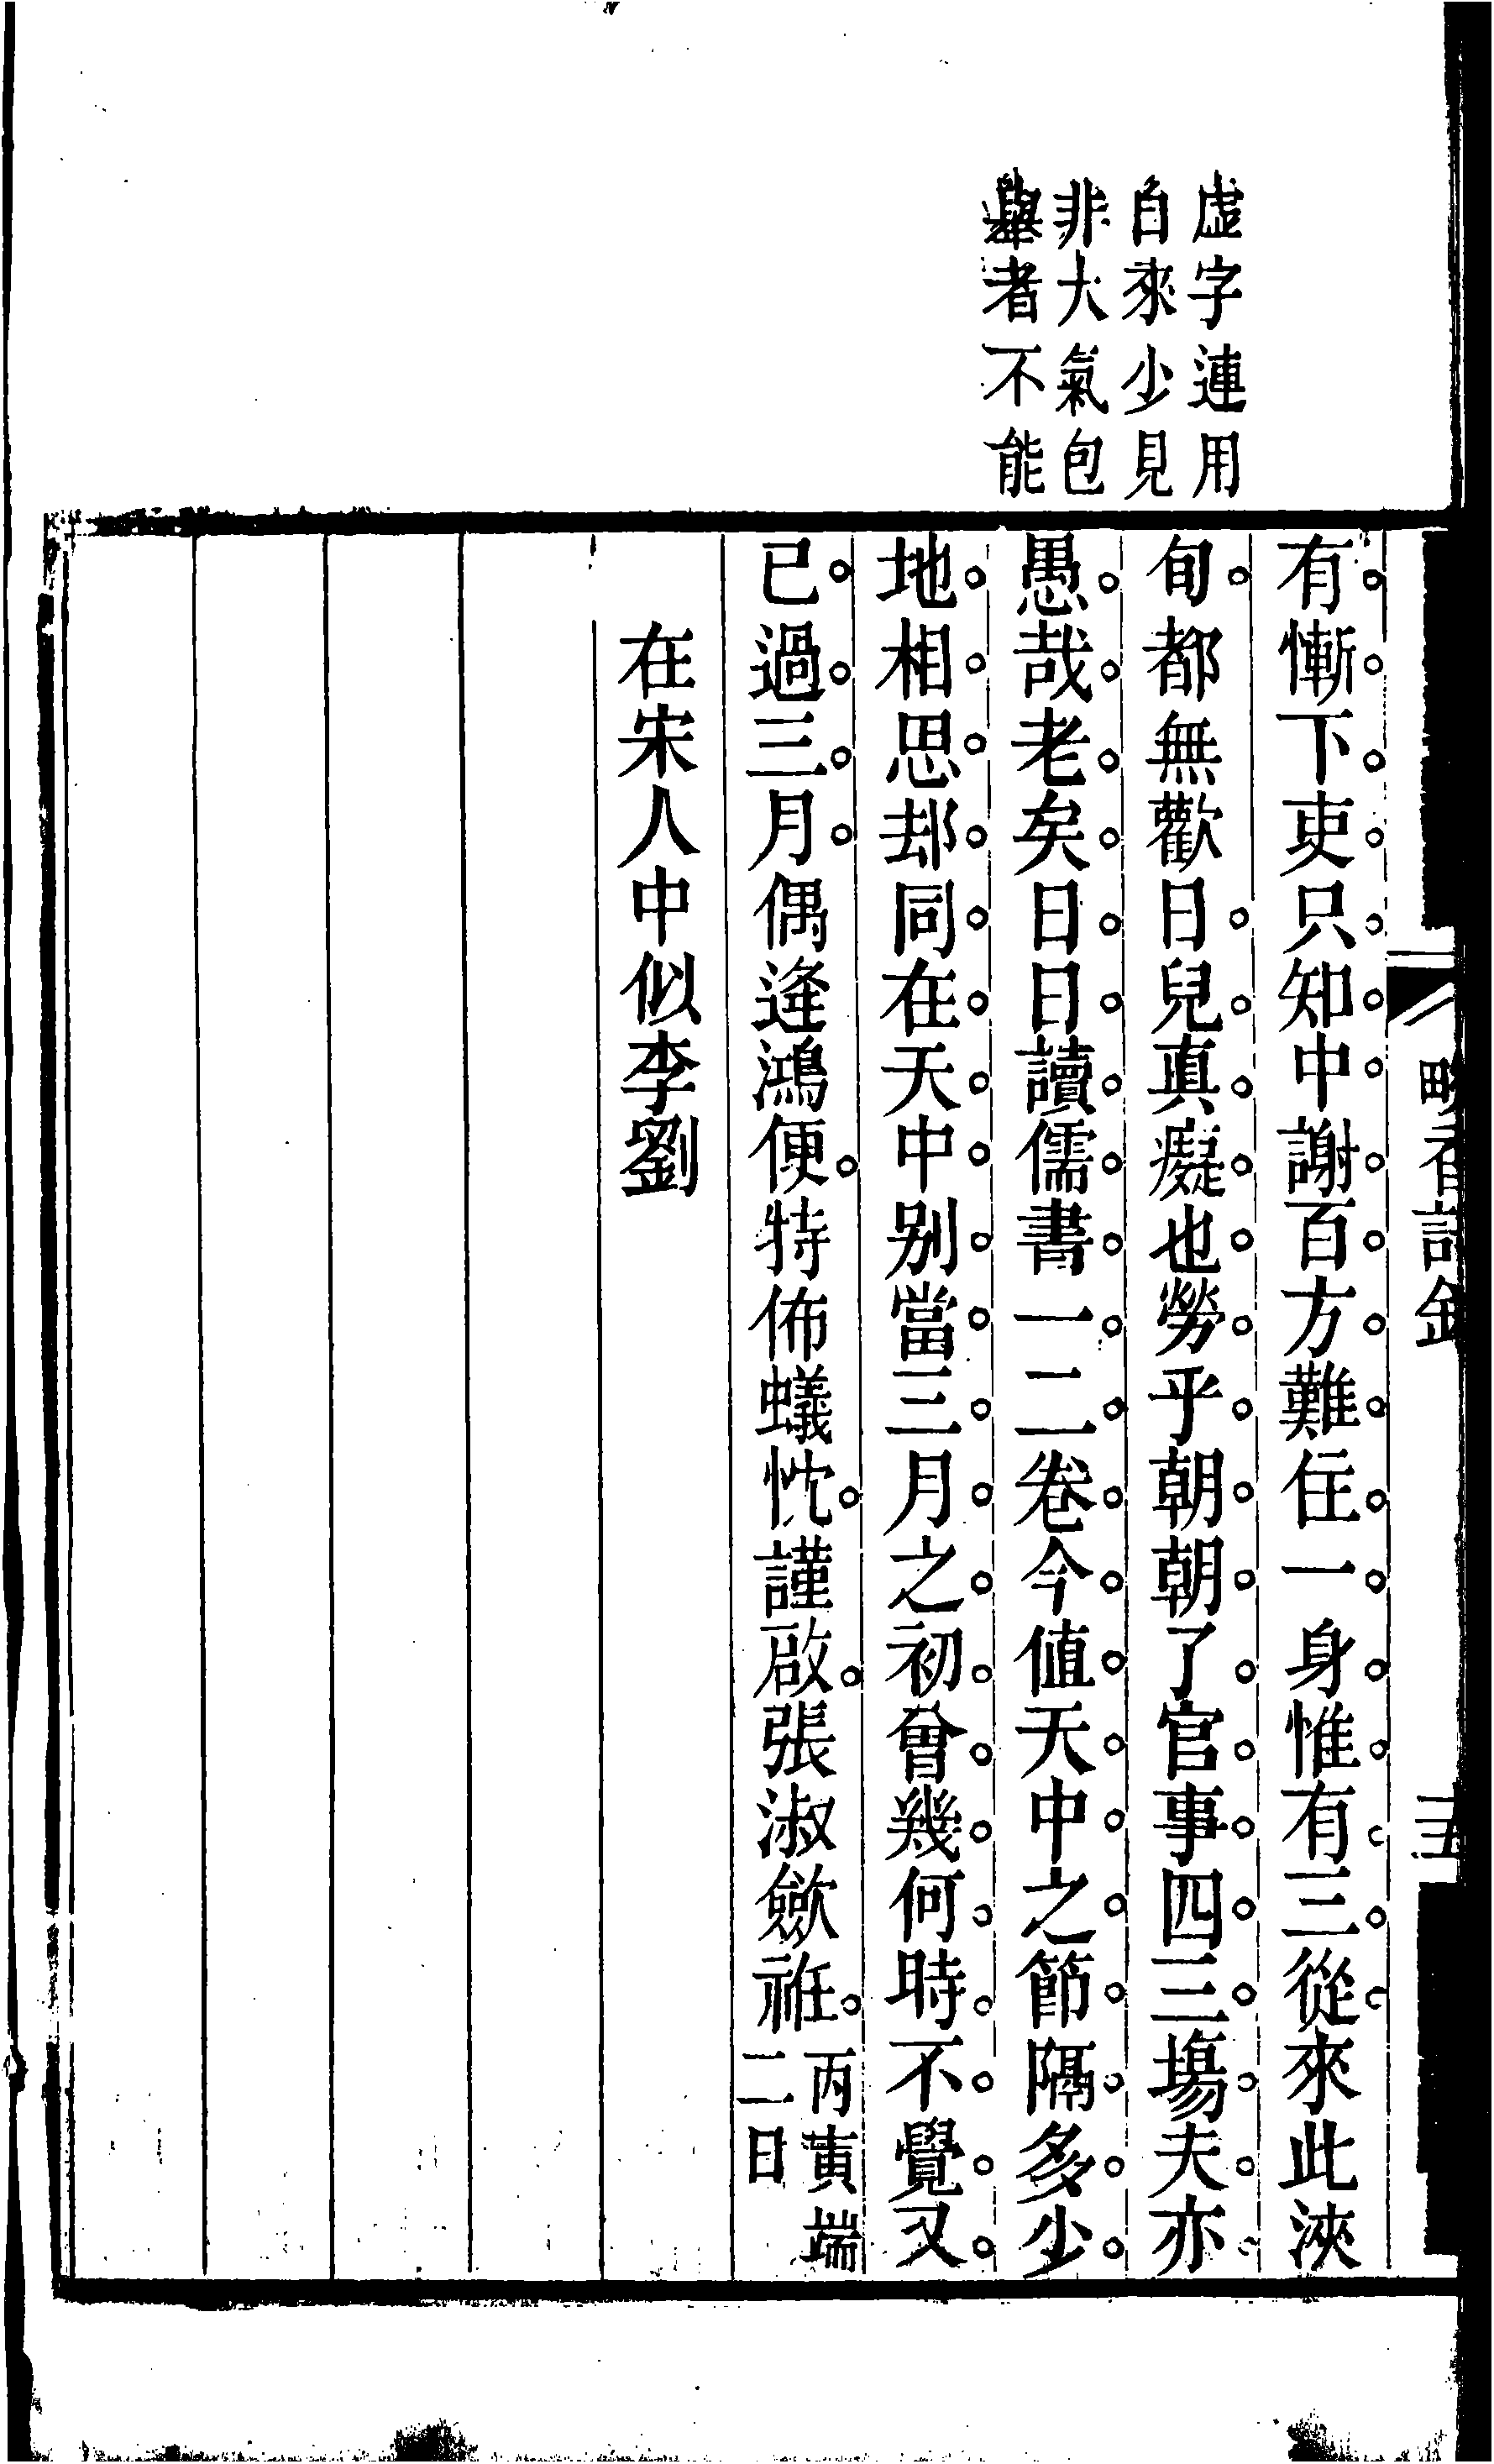 虛字連用
自來少見
非大氣包
舉者不能
有慚下吏只知中謝百方難住一身惟有三從來此浹
旬都無歡日兒真癡也勞乎朝朝了官事四三塲夫亦
愚哉老矣日日讀儒書一二卷今値天中之節隔多少
地相思却同在天中别當三月之初曾幾何時不覺又
已過三月偶逢鴻便特佈蟻忱謹啟張淑歛袵
丙寅端
二日
在宋人中似李劉